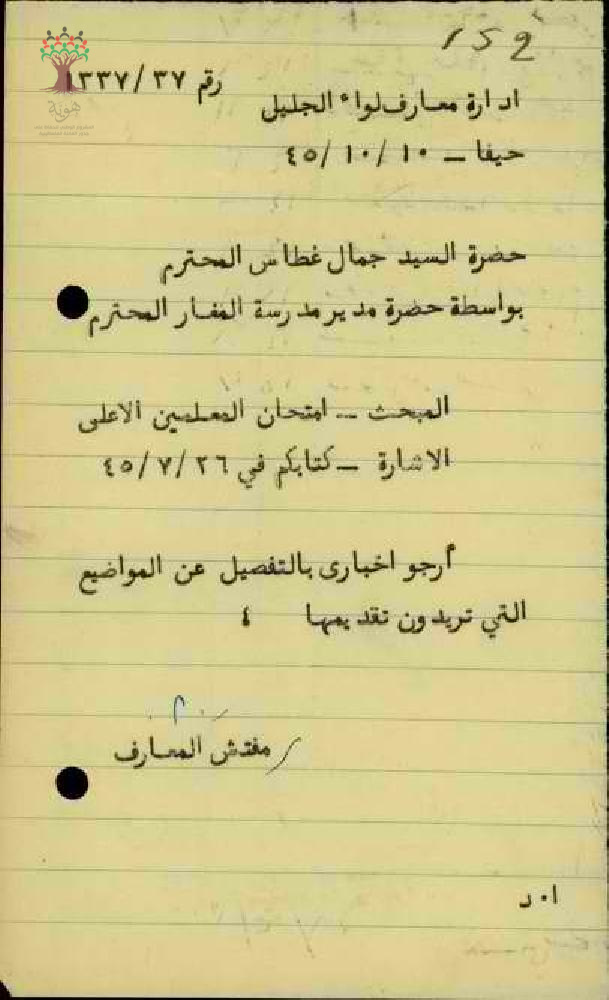 159
رقم ١٣٣٧/٣٧
ادارة معارف لواء الجليل
حيفا – ١٠/١٠/٤٥
حضرة السيد جمال غطاس المحترم
بواسطة حضرة مدير مدرسة المغار المحترم
المبحث – امتحان المعلمين الاعلى
الاشارة – كتابكم في ٢٦/٧/٤٥
أرجو اخبارى بالتفصيل عن المواضيع
التي تريدون تقديمها ٤
مفتش المعارف
ا٠د
هوية